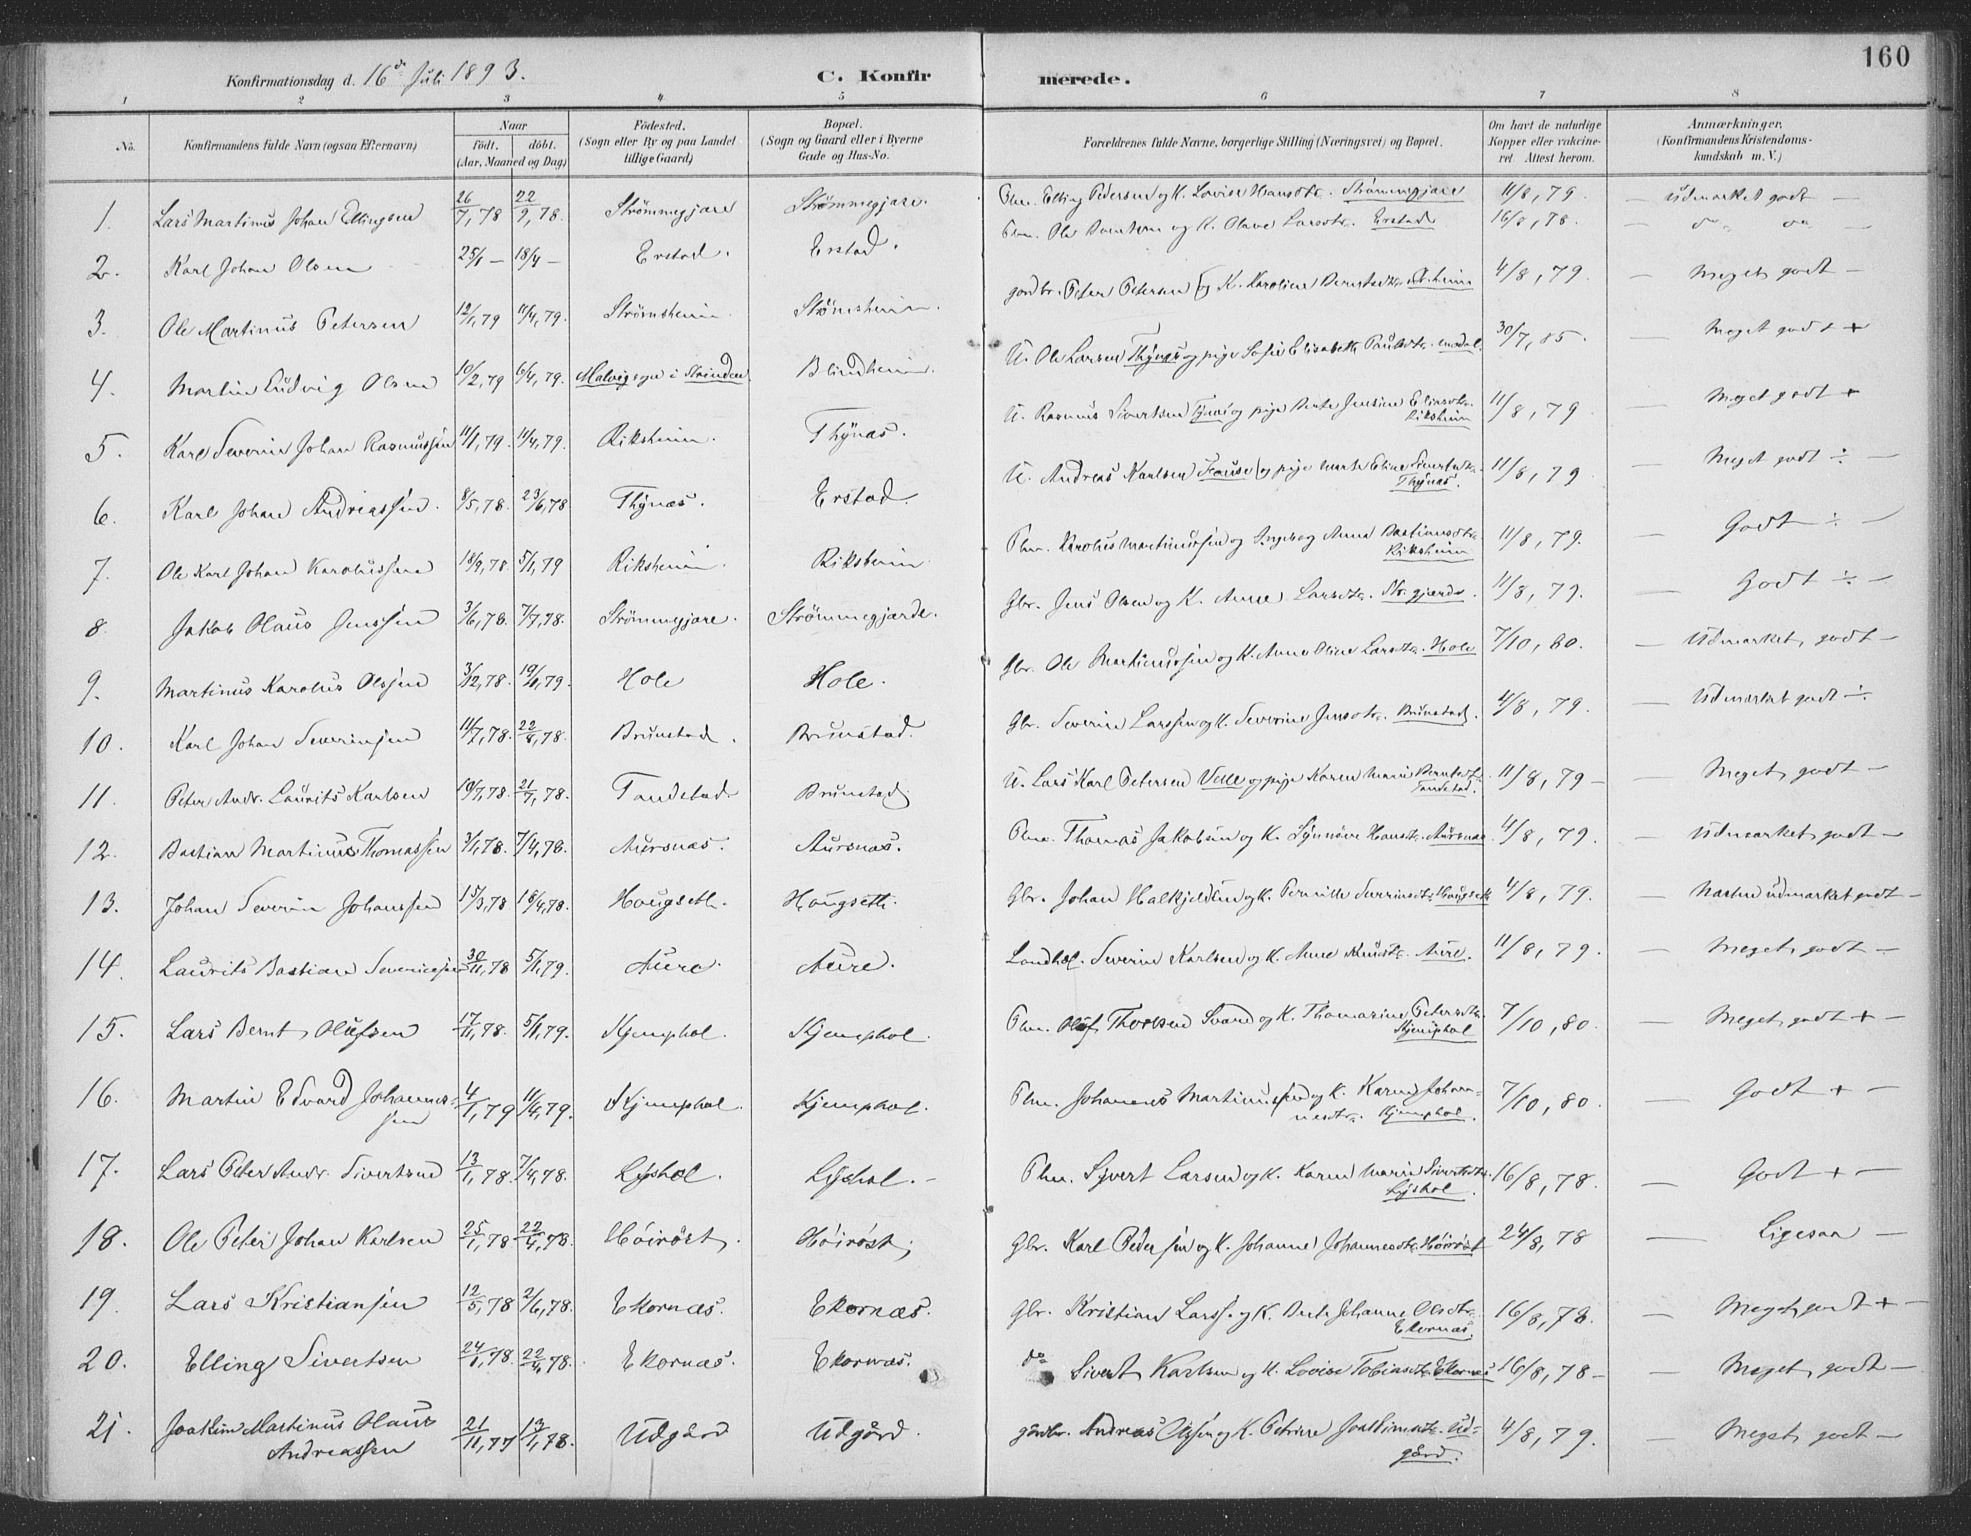 160
Konfirmationsdag d. 16de Juli 1893. C. Konfirmerede.
1 2 3 4 5 6 7 8
No. Konfirmandens fulde Navn (ogsaa Efternavn) Naar födt. döbt. (Aar, Maaned og Dag) Födested. (Sogn eller By og paa Landet tillige Gaard) Bopæl. (Sogn og Gaard eller i Byerne Gade og Hus-No. Forældrenes fulde Navne, borgerlige Stilling (Næringsvei) og Bopæl. Om havt de naturlige Kopper eller vakcineret. Attest herom. Anmærkninger. (Konfirmandens Kristendomskundskab m. V.)
1. Lars Martinus Johan Ellingsen 26/7, 78 22/9, 78. Strömmegjare Strömmegjare. Plm. Elling Pedersen og K. Lovise Hansdtr. Strömmegjare 11/8, 79. — Udmærket godt —
2. Karl Johan Olsen 25/1 — 18/4 — Erstad. Erstad. Plm. Ole og K. Olave Larsdtr. Erstad 16/8, 78. — do
3. Ole Martinus Petersen 12/1, 79 11/4, 79. Strömsheim. Strömsheim. gaardbr. Peter Petersen og K. Karoline Berntsdtr. Str.heim 4/8, 79. — Meget godt —
4. Martin Ludvig Olsen 10/2, 79 6/4, 79. Malvig sogn i Strinden Blindheim. U. Ole Larsen Thynes og pige Sofie Elisabeth Paulsdtr. 30/7, 85. — Meget godt +
5. Karl Severin Johan Rasmussen 11/1, 79. 14/4, 79. Riksheim. Thynas. U. Rasmus Sivertsen og pige Berte Jensine Eliasdtr. Riksheim 11/8, 79 — Meget godt +
6. Karl Johan Andreassen. 8/5, 78. 23/6, 78 Thynas. Erstad U. Andreas Karlsen Fause og pige Marte Eline Sivertsdtr. Thynas. 11/8, 79 — Meget godt ÷ —
7. Ole Karl Johan Karolussen 18/9, 78. 5/1, 79 Riksheim. Riksheim Plm. Karolus Martinussen og Ingeborg Anna Bastiansdtr. Riksheim 11/8, 79. — Godt ÷ —
8. Jakob Olaus Jenssen 3/6, 78. 7/7, 78. Strömmegjare. Strömmegjærde. Gbr. Jens Olsen og K. Anne Larsdtr. Str.gjerde. 11/8, 79. — Godt ÷ —
9. Martinus Karolus Olssen 3/12, 78. Hole Hole. Gbr. Ole Martinussen og K. Anne Oline Larsdtr. Hole 7/10, 80. — Udmærket godt —
10. Karl Johan Severinsen 11/7, 78. 22/8, 78. Brunstad. Brunstad. Gbr. Severin Larssen og K. Severine Jensdtr. Brunstad. 4/8, 79. — Udmærket godt ÷
11. Peter Andr. Laurits Karlsen 10/7, 78. 21/7, 78. Tandstad. Brunstad U. Lars Karl Petersen Velle og pige Karen Marie Berntsdtr. Tandstad. 11/8, 79 — — Meget godt —
12. Bastian Martinus Thomassen 3/1, 78. 7/4, 78. Aursnas. Aursnas. Plm. Thomas Jakobsen og K. Synnöve Hansdtr. Aursnas 4/8, 79. — Udmærket godt —
13. Johan Severin Johanssen 15/3, 78 18/4, 78. Hougseth. Hougseth. Gbr. Johan Halkjeldsen og K. Pernille Severinsdtr. Hougseth 4/8, 79. — Næsten udmærket godt —
14. Laurits Bastian Severinsen 30/11, 78 5/1, 79. Aure Aure. Landhdl. Severin Karlsen og K. Anne Knudsdtr. Aure. 11/8, 79. — Meget godt —
15. Lars Bernt Olufsen 17/11, 78. 5/1, 79. Kjemphol. Kjemphol. Plm. Oluf Thorsen Svard og K. Thomasine Petersdtr. Kjemphol 7/10, 80. — Meget godt + —
16. Martin Edvard Johannessen 4/1, 79 11/4, 79. Kjemphol. Kjemphol. Plm. Johannes Martinussen og K. Karen Johannesdtr. Kjemphol. 7/10, 80. — Godt + —
17. Lars Peter Andr. Sivertsen 13/1, 78. 7/4, 78. Lyshol. Lyshol. — Plm. Syvert Larsen og K. Karen Marie Sivertsdtr. Lyshol. 16/8, 78. — Godt + —
18. Ole Peter Johan Karlsen 25/1, 78 22/4, 78. Höiröst. Höiröst. Gbr. Karl Pedersen og K. Johanne Johannesdtr. Höiröst 24/8, 78 — Ligesaa —
19. Lars Kristiansen 12/5, 78 2/6, 78. Ekornas. Ekornas. Gbr. Kristian Larss. og K. Berte Johanne Olsdtr. Ekornas. 16/8, 78. — Meget godt + —
20. Elling Sivertsen 24/1, 78. 22/4, 78. Ekornas. Ekornas. do Sivert Karlsen og K. Lovise Tobiasdtr. Ekornas 16/8, 78 — — Meget godt —
21. Joakim Martinus Olaus Andreassen 21/11, 77 13/1, 78. Udgård Udgård. gårdbr. Andreas Olsen og K. Petrine Joakimsdtr. Udgård. 4/8, 79. — Meget godt —